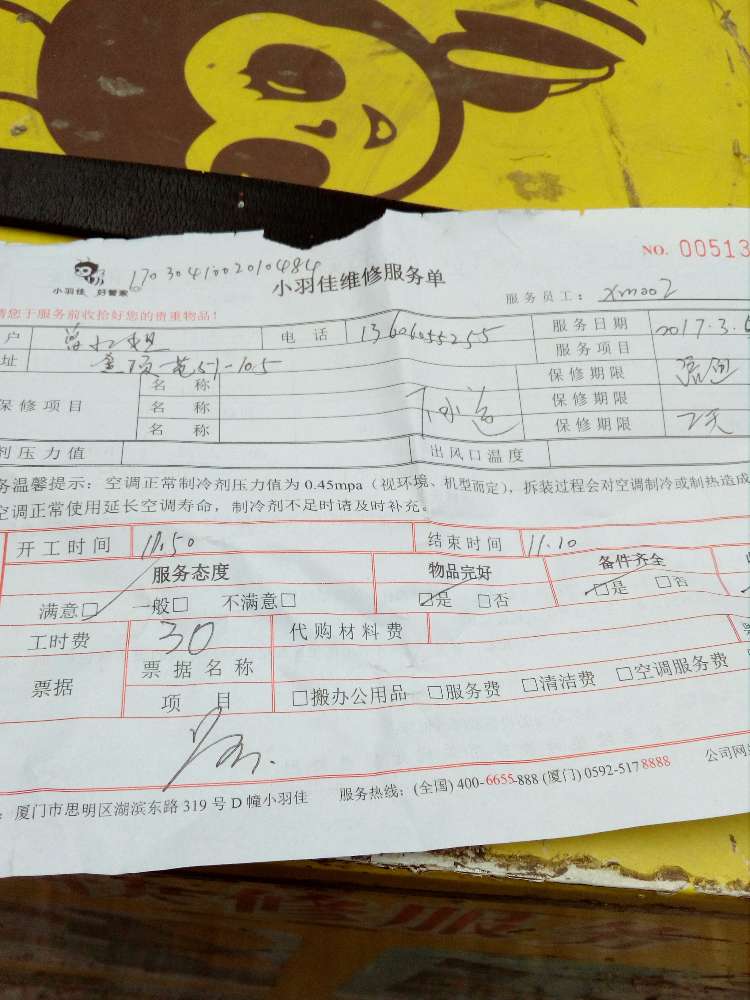 NO. 00513
1703041002010484
小羽佳 好管家
小羽佳维修服务单
服务员工:
请您于服务前收拾好您的贵重物品!
户 电话 13606055255 服务日期 2017.3.
址 服务项目
保修项目 名称 保修期限
名称 下水道 保修期限
名称 保修期限
剂压力值 出风口温度
务温馨提示:空调正常制冷剂压力值为 0.45mpa(视环境、机型而定),拆装过程会对空调制冷或制热造成
空调正常使用延长空调寿命,制冷剂不足时请及时补充。
开工时间 10.50 结束时间 11.10
服务态度 物品完好 备件齐全
满意□ 一般□ 不满意□ □是 □否 □是 □否
工时费 30 代购材料费
票据 票据名称
项目 □搬办公用品 □服务费 □清洁费 □空调服务费
:厦门市思明区湖滨东路 319 号 D 幢小羽佳 服务热线:(全国) 400-6655-888 (厦门) 0592-5178888 公司网
修服务